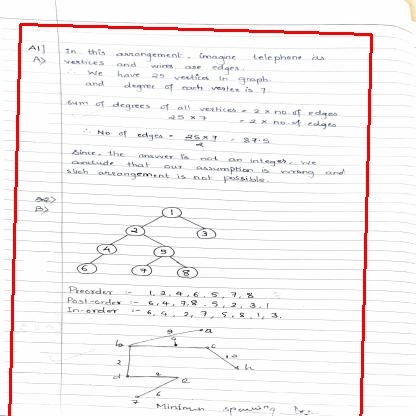 A1]
A> In this arrangement, imagine telephone as
vertices and wires are edges.
∴ We have 25 vertices in graph.
and degree of each vertex is 7.
Sum of degrees of all vertices = 2 x no. of edges
25 x 7 = 2 x no. of edges
∴ No of edges = 25 x 7 / 2 = 87.5
Since, the answer is not an integer, we
conclude that our assumption is wrong and
such arrangement is not possible.
B>
1
2 3
4 5
6 7 8
Preorder :- 1, 2, 4, 6, 5, 7, 8
Post-order :- 6, 4, 7, 8, 5, 2, 3, 1
In-order :- 6, 4, 2, 7, 5, 8, 1, 3.
a
b c
2 h
d e
6
Minimum spanning